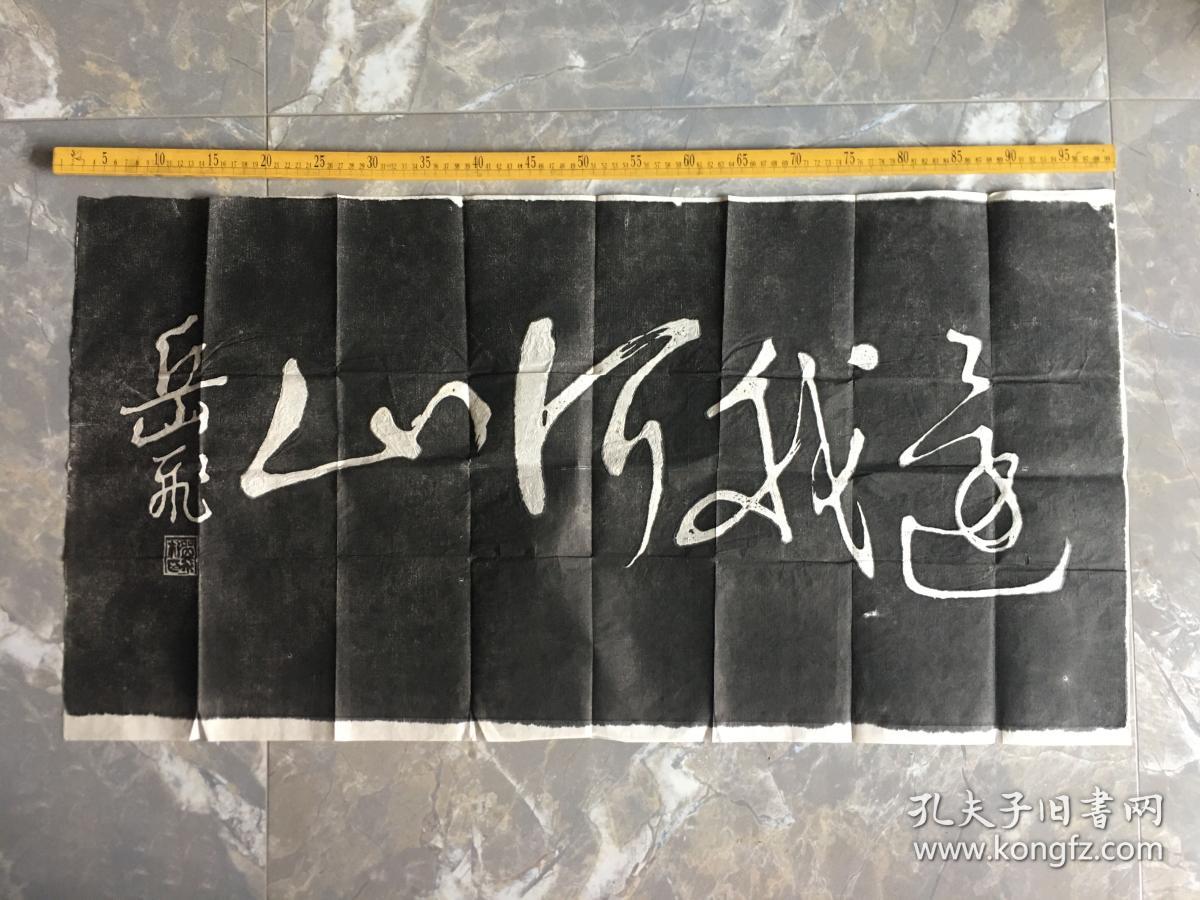 5 10 15 20 25 30 35 40 45 50 55 60 65 70 75 80 85 90 95
還我河山
岳飛
孔夫子旧書网
www.kongfz.com